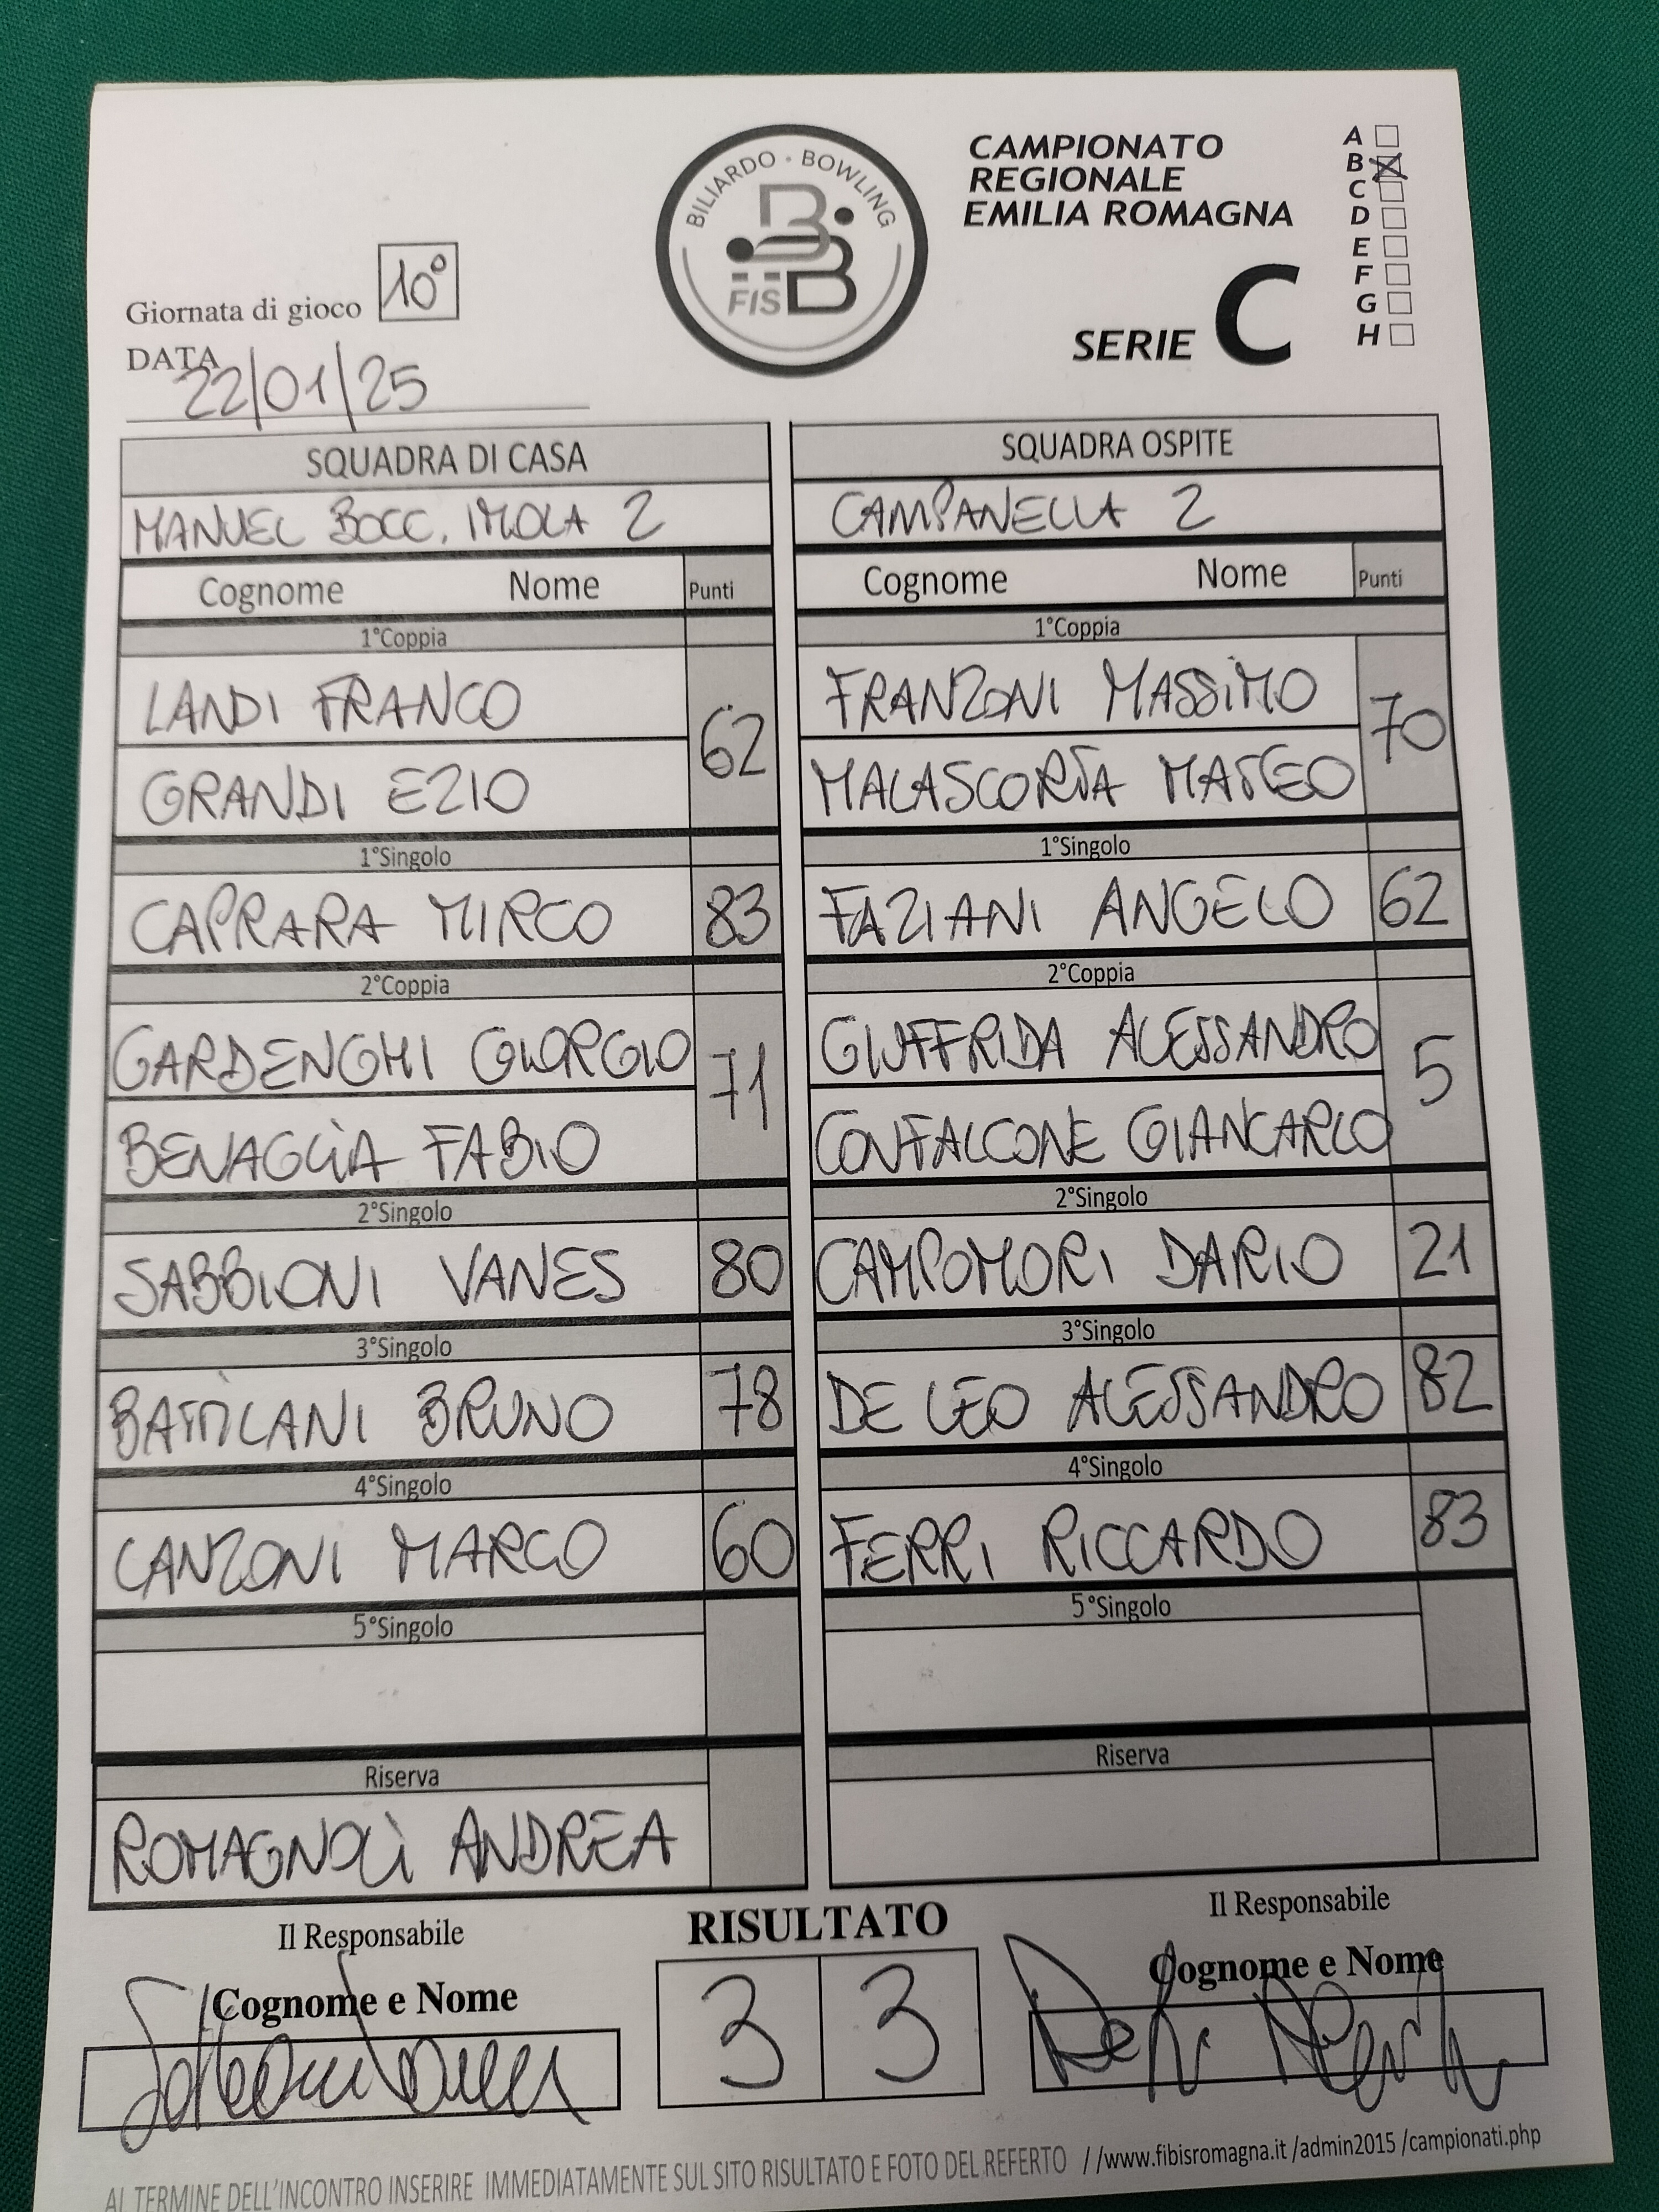 BILIARDO · BOWLING
FISBB
CAMPIONATO
REGIONALE
EMILIA ROMAGNA
SERIE C
A
B
C
D
E
F
G
H
Giornata di gioco 10°
DATA
22/01/25
SQUADRA DI CASA
MANUEL BOCC. IMOLA 2
Cognome Nome Punti
1°Coppia
LANDI FRANCO
62
GRANDI EZIO
1°Singolo
CAPRARA MIRCO 83
2°Coppia
GARDENGHI GIORGIO
71
BENAGLIA FABIO
2°Singolo
SABBIONI VANES 80
3°Singolo
BATTILANI BRUNO 78
4°Singolo
CANZONI MARCO 60
5°Singolo
Riserva
ROMAGNOLI ANDREA
SQUADRA OSPITE
CAMPANELLA 2
Cognome Nome Punti
1°Coppia
FRANZONI MASSIMO
70
MALASCORTA MATTEO
1°Singolo
FAZIANI ANGELO 62
2°Coppia
GIUFFRIDA ALESSANDRO
5
CONFALCONE GIANCARLO
2°Singolo
CAMPOMORI DARIO 21
3°Singolo
DE LEO ALESSANDRO 82
4°Singolo
FERRI RICCARDO 83
5°Singolo
Riserva
Il Responsabile
Cognome e Nome
RISULTATO
3 3
Il Responsabile
Cognome e Nome
AL TERMINE DELL'INCONTRO INSERIRE IMMEDIATAMENTE SUL SITO RISULTATO E FOTO DEL REFERTO //www.fibisromagna.it /admin2015 /campionati.php